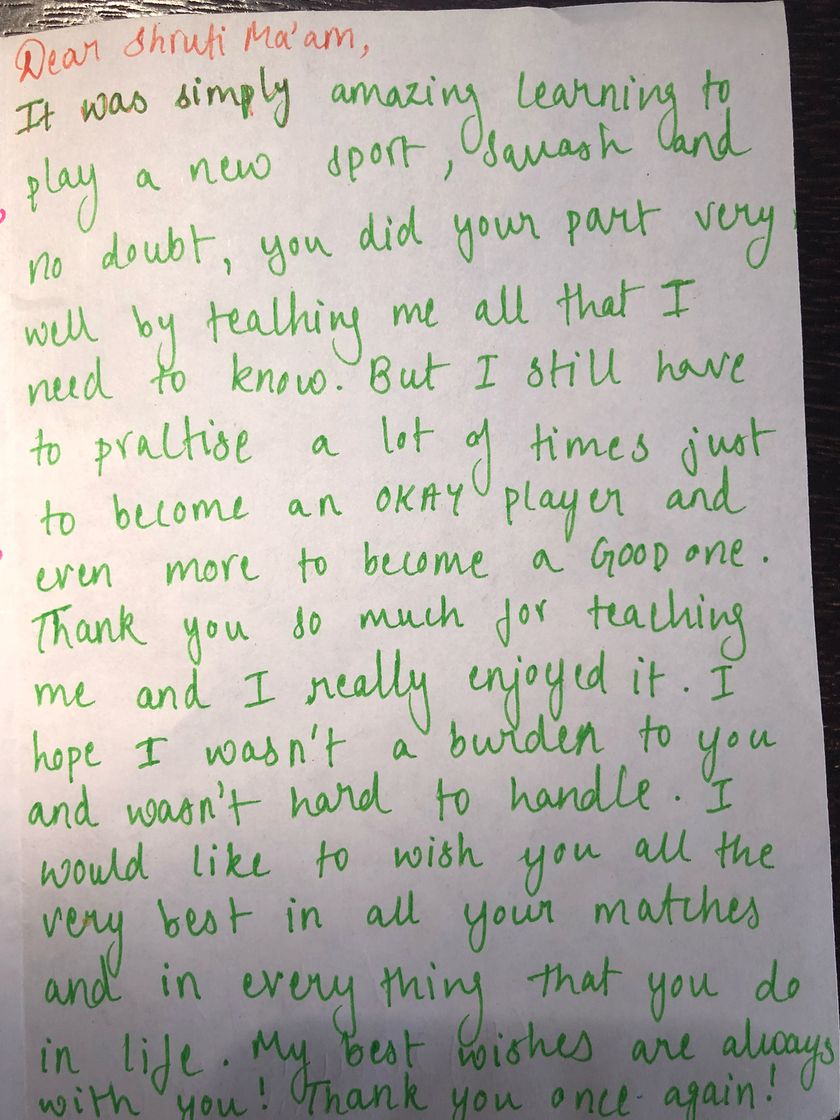 Dear Shruti Ma'am,
It was simply amazing learning to
play a new sport, squash and
no doubt, you did your part very
well by teaching me all that I
need to know. But I still have
to practise a lot of times just
to become an OKAY player and
even more to become a GOOD one.
Thank you so much for teaching
me and I really enjoyed it. I
hope I wasn't a burden to you
and wasn't hard to handle. I
would like to wish you all the
very best in all your matches
and in every thing that you do
in life. My best wishes are always
with you! Thank you once again!